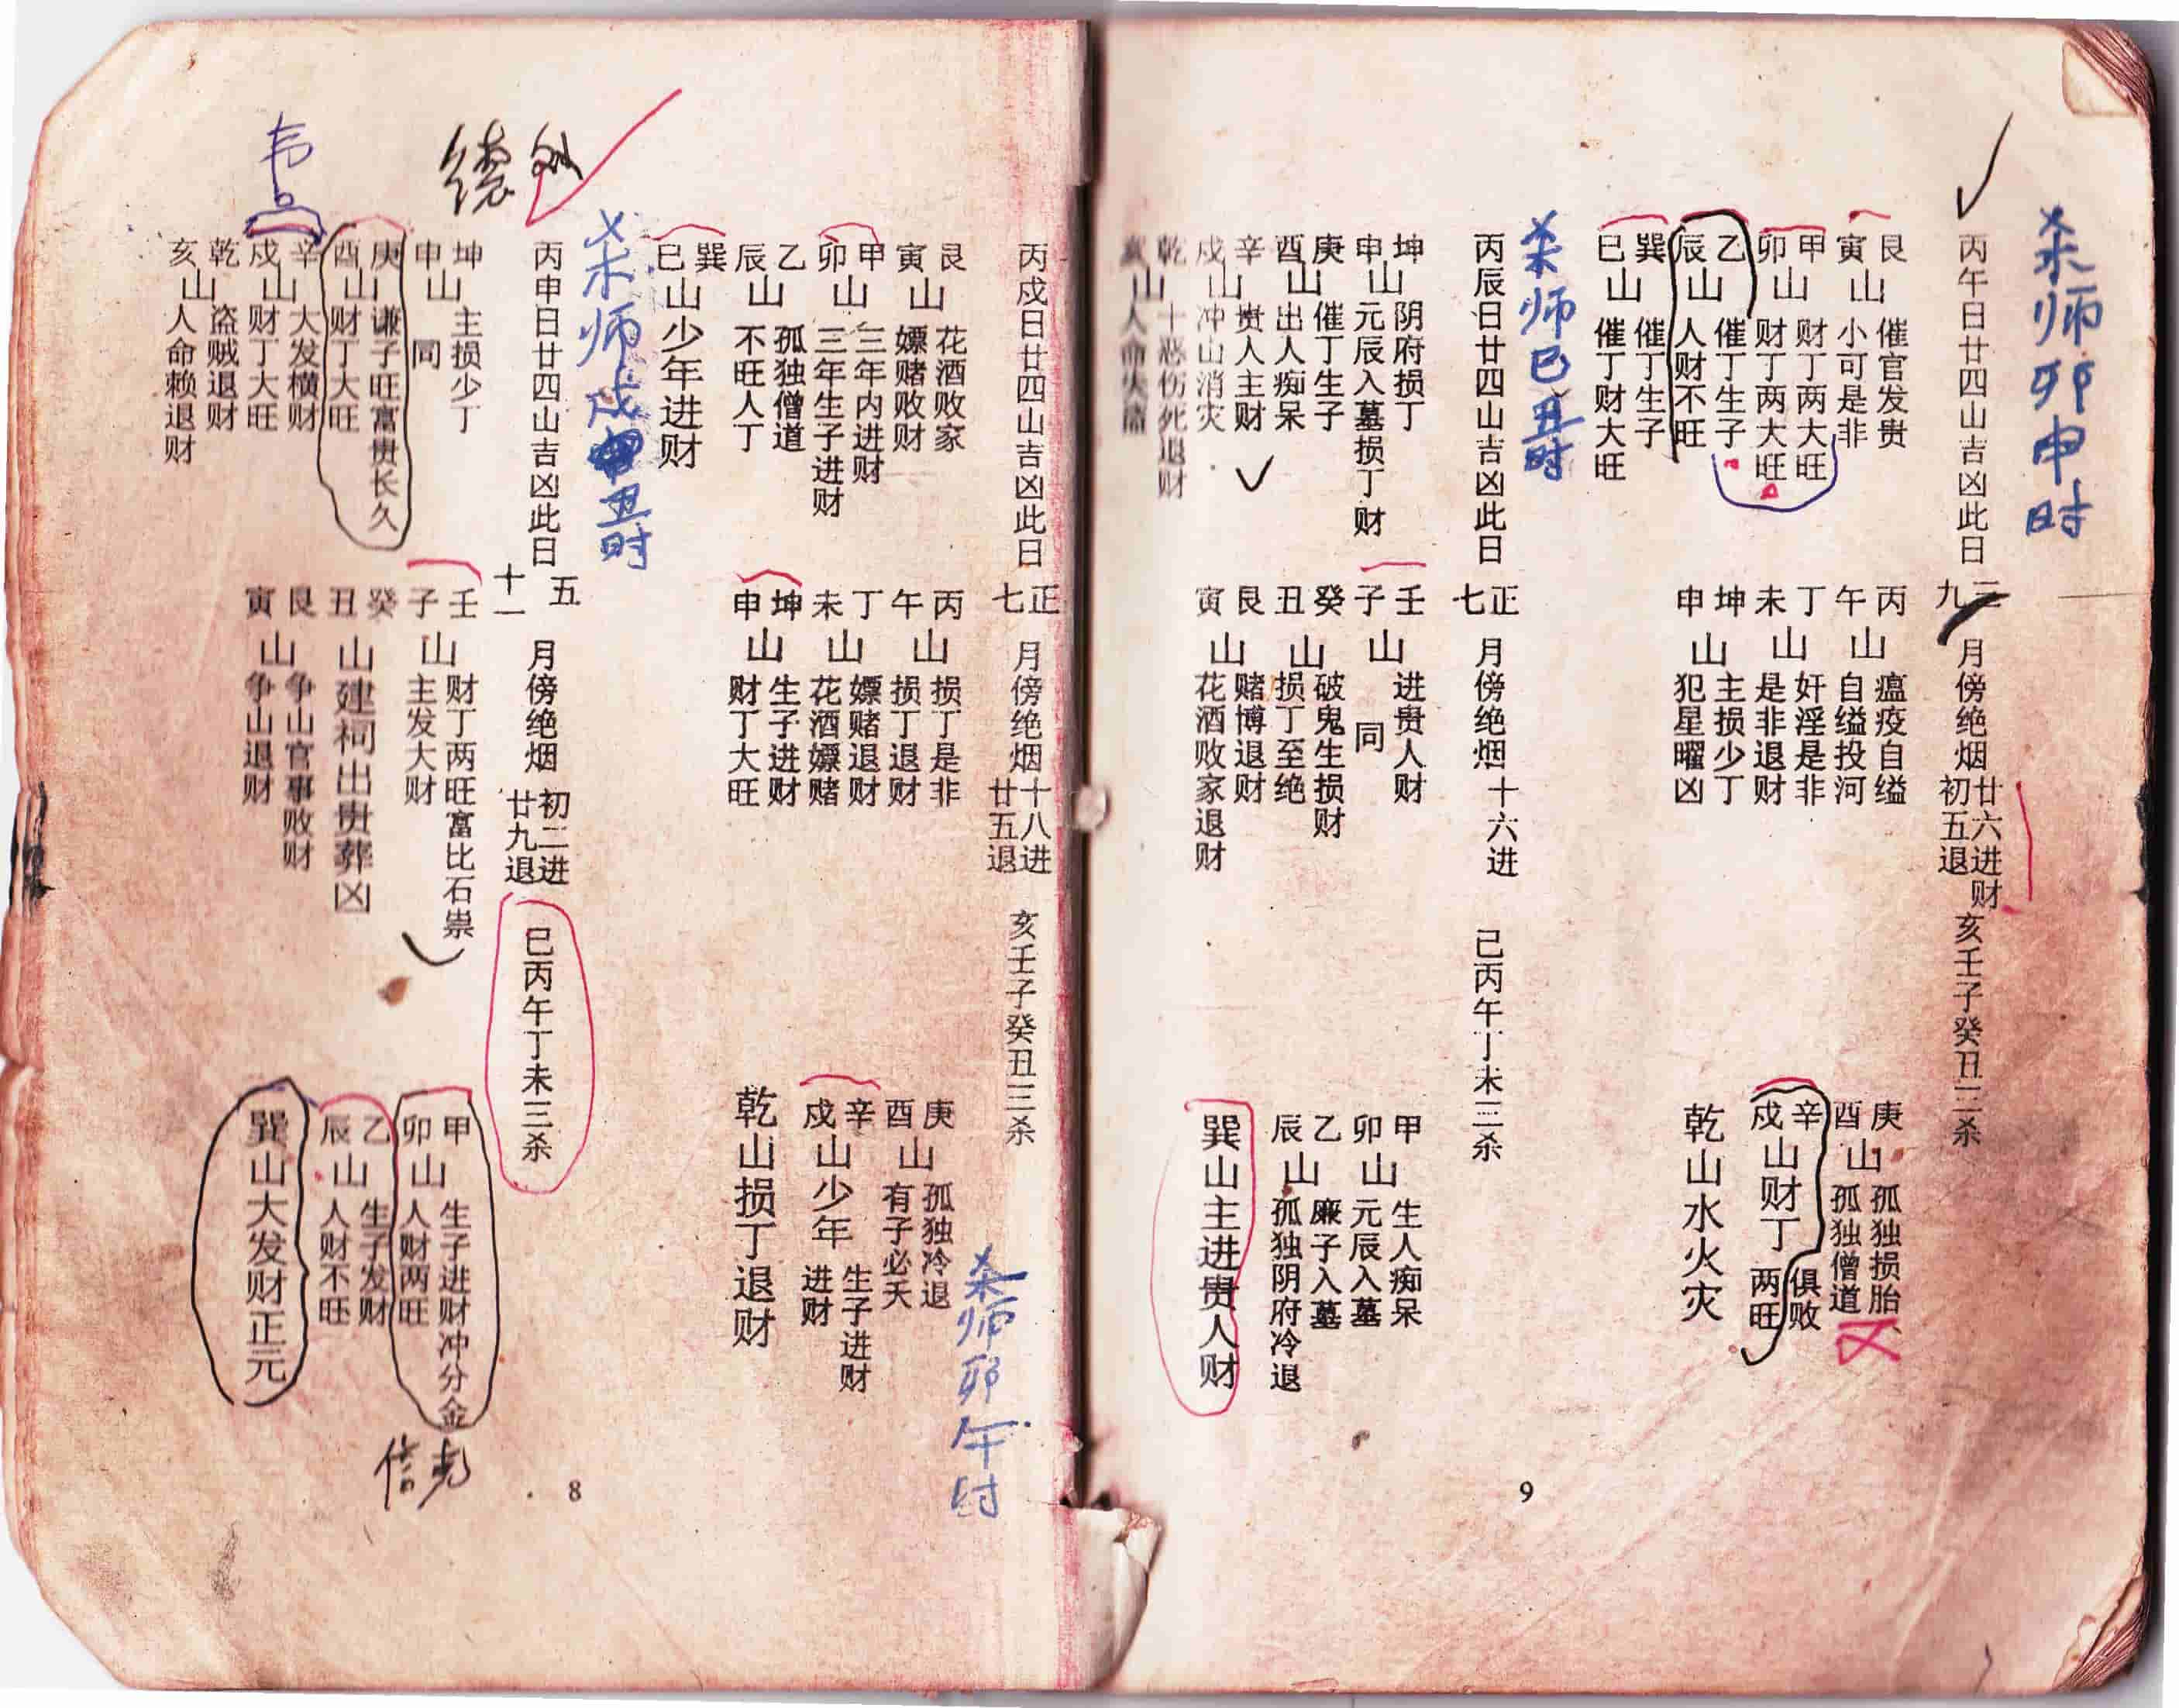 丙戌日廿四山吉凶此日
正七
月傍绝烟
十八进
廿五退
亥壬子癸丑三杀
杀师卯午时
艮寅山
花酒败家
嫖赌败财
甲卯山
三年内进财
三年生子进财
乙辰山
孤独僧道
不旺人丁
巽巳山少年进财
丙午山
损丁是非
损丁退财
丁未山
嫖赌退财
花酒嫖赌
坤申山
生子进财
财丁大旺
庚酉山
孤独冷退
有子必夭
辛戍山少年
生子进财
进财
乾山损丁退财
杀师戍
丑时
丙申日廿四山吉凶此日
五十一
月傍绝烟
初二进
廿九退
巳丙午丁未三杀
坤申山
主损少丁
同
庚酉山
谦子旺富贵长久
财丁大旺
辛戍山
大发横财
财丁大旺
乾亥山
盗贼退财
人命赖退财
韦
壬子山
财丁两旺富比石祟
主发大财
癸丑山建祠出贵葬凶
艮寅山
争山官事败财
争山退财
甲卯山
生子进财冲分金
人财两旺
乙辰山
生子发财
人财不旺
巽山大发财正元
8
杀师卯申时
丙午日廿四山吉凶此日
三九
月傍绝烟
廿六进财
初五退
亥壬子癸丑三杀
艮寅山
催官发贵
小可是非
甲卯山
财丁两大旺
财丁两大旺
乙辰山
催丁生子
人财不旺
巽巳山
催丁生子
催丁财大旺
丙午山
瘟疫自缢
自缢投河
丁未山
奸淫是非
是非退财
坤申山
主损少丁
犯星曜凶
庚酉山
孤独损胎
孤独僧道
辛戍山财丁
俱败
两旺
乾山水火灾
杀师巳丑时
丙辰日廿四山吉凶此日
正七
月傍绝烟
十六进
己丙午丁未三杀
坤申山
阴府损丁
元辰入墓损丁财
庚酉山
催丁生子
出人痴呆
辛戍山
贵人主财
冲山消灾
乾亥山
十恶伤死退财
人命失
壬子山
进贵人财
同
癸丑山
破鬼生损财
损丁至绝
艮寅山
赌博退财
花酒败家退财
甲卯山
生人痴呆
元辰入墓
乙辰山
廉子入墓
孤独阴府冷退
巽山主进贵人财
9